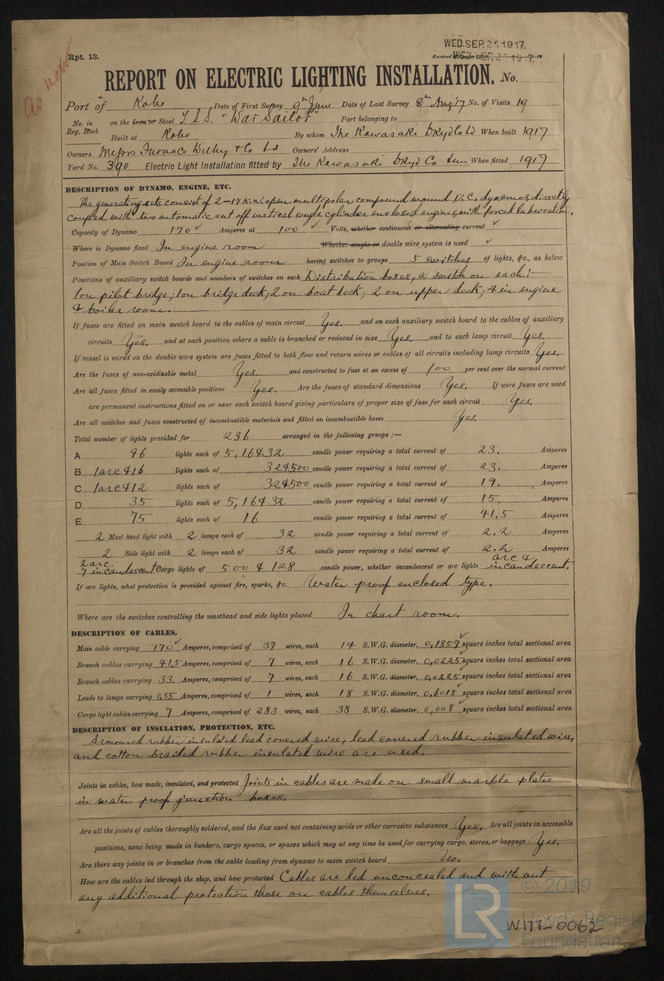 WED. SEP. 26 1917.
Rpt. 13.
REPORT ON ELECTRIC LIGHTING INSTALLATION. No.
Port of Kobe Date of First Survey 9th June Date of Last Survey 8th Aug 17 No. of Visits 19
No. in Reg. Book on the Iron or Steel T.S.S. "War Sailor" Port belonging to
Built at Kobe By whom The Kawasaki DKyd Co Ld When built 1917
Owners Messrs Furness Withy & Co Ld Owners' Address
Yard No. 390 Electric Light Installation fitted by The Kawasaki DKyd Co Ltd When fitted 1917
DESCRIPTION OF DYNAMO, ENGINE, ETC.
The generating sets consist of 2-17 K.w. open multipolar compound wound D.C. dynamos directly
coupled with two automatic cut off vertical single cylinder enclosed engines with forced lubrication.
Capacity of Dynamo 170 Amperes at 100 Volts, whether continuous or alternating current
Where is Dynamo fixed In engine room Whether single or double wire system is used
Position of Main Switch Board In engine room having switches to groups 5 switches of lights, &c., as below
Positions of auxiliary switch boards and numbers of switches on each Distribution boxes, a switch on each:-
1 on pilot bridge, 1 on bridge deck, 2 on boat deck, 2 on upper deck, 4 in engine
& boiler room.
If fuses are fitted on main switch board to the cables of main circuit Yes. and on each auxiliary switch board to the cables of auxiliary
circuits Yes. and at each position where a cable is branched or reduced in size Yes. and to each lamp circuit Yes.
If vessel is wired on the double wire system are fuses fitted to both flow and return wires or cables of all circuits including lamp circuits Yes.
Are the fuses of non-oxidizable metal Yes. and constructed to fuse at an excess of 100 per cent over the normal current
Are all fuses fitted in easily accessible positions Yes. Are the fuses of standard dimensions Yes. If wire fuses are used
are permanent instructions fitted on or near each switch board giving particulars of proper size of fuse for each circuit Yes.
Are all switches and fuses constructed of incombustible materials and fitted on incombustible bases Yes.
Total number of lights provided for 236 arranged in the following groups :—
A 96 lights each of 5, 16 & 32 candle power requiring a total current of 23. Amperes
B 1 arc & 16 lights each of 32 & 500 candle power requiring a total current of 23. Amperes
C 1 arc & 12 lights each of 32 & 500 candle power requiring a total current of 19. Amperes
D 35 lights each of 5, 16 & 32 candle power requiring a total current of 15. Amperes
E 75 lights each of 16 candle power requiring a total current of 41.5 Amperes
2 Mast head light with 2 lamps each of 32 candle power requiring a total current of 2.2 Amperes
2 Side light with 2 lamps each of 32 candle power requiring a total current of 2.2 Amperes
2 arc 7 incandescent Cargo lights of 500 & 128 candle power, whether incandescent or arc lights arc & incandescent.
If arc lights, what protection is provided against fire, sparks, &c. Water proof enclosed type.
Where are the switches controlling the masthead and side lights placed In chart room.
DESCRIPTION OF CABLES.
Main cable carrying 170 Amperes, comprised of 37 wires, each 14 S.W.G. diameter, 0.1857 square inches total sectional area
Branch cables carrying 41.5 Amperes, comprised of 7 wires, each 16 S.W.G. diameter, 0.0225 square inches total sectional area
Branch cables carrying 33. Amperes, comprised of 7 wires, each 16 S.W.G. diameter, 0.0225 square inches total sectional area
Leads to lamps carrying 0.55 Amperes, comprised of 1 wires, each 18 S.W.G. diameter, 0.0018 square inches total sectional area
Cargo light cables carrying 7 Amperes, comprised of 283 wires, each 38 S.W.G. diameter, 0.008 square inches total sectional area
DESCRIPTION OF INSULATION, PROTECTION, ETC.
Armoured rubber insulated lead covered wire, lead covered rubber insulated wire,
and cotton braided rubber insulated wire are used.
Joints in cables, how made, insulated, and protected Joints in cables are made on small marble plates
in water proof junction boxes.
Are all the joints of cables thoroughly soldered, and the flux used not containing acids or other corrosive substances Yes. Are all joints in accessible
positions, none being made in bunkers, cargo spaces, or spaces which may at any time be used for carrying cargo, stores, or baggage Yes.
Are there any joints in or branches from the cable leading from dynamo to main switch board No.
How are the cables led through the ship, and how protected Cables are led unconcealed and without
any additional protection those on cables themselves.
LR
© 2019
Lloyd's Register
Foundation
W177-0062